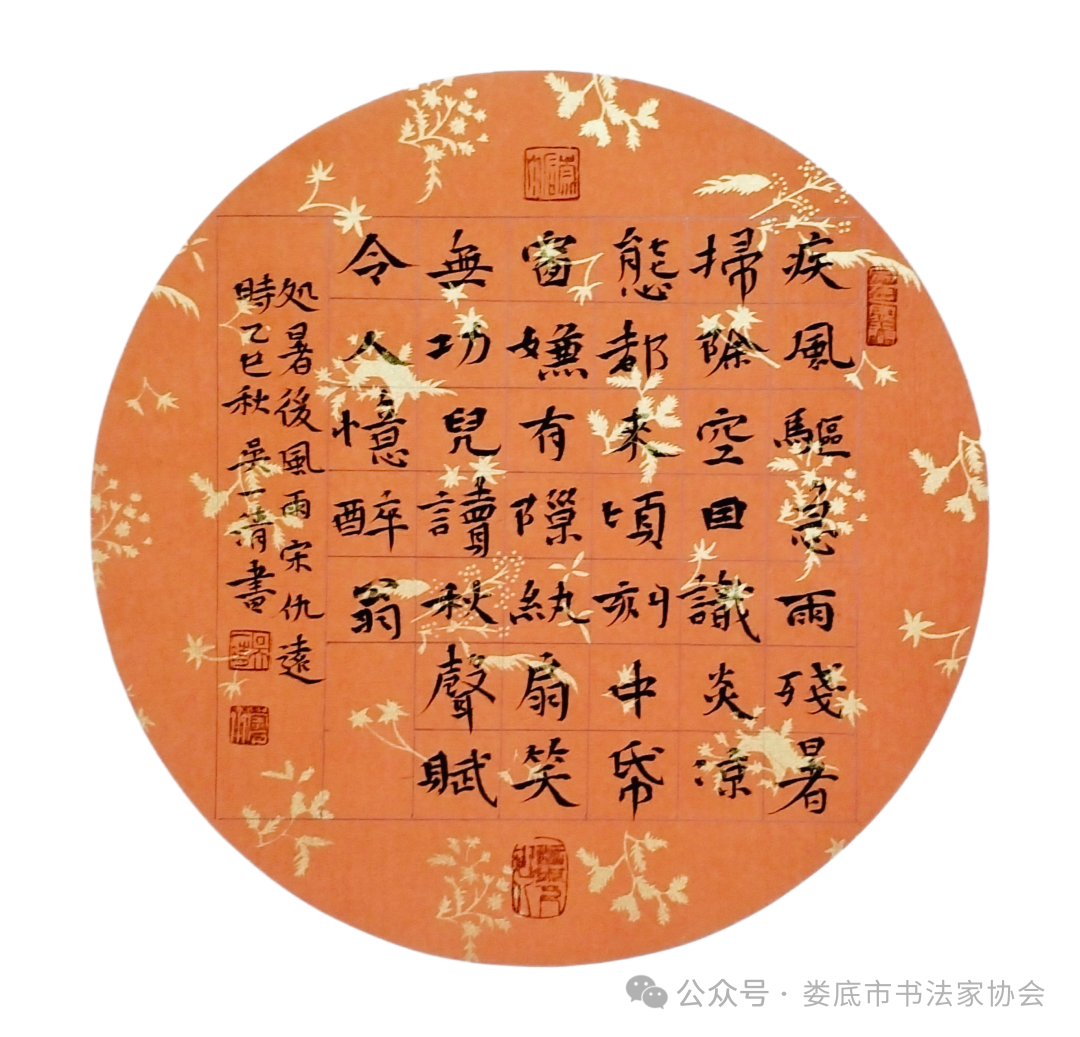 疾風驅急雨殘暑
掃除空囙識炎凉
態都來頃刻中帋
窗嫌有隟紈扇笑
無功兒讀秋聲賦
令人憶醉翁
処暑後風雨宋仇遠
時乙巳秋吴一清書
公众号·娄底市书法家协会